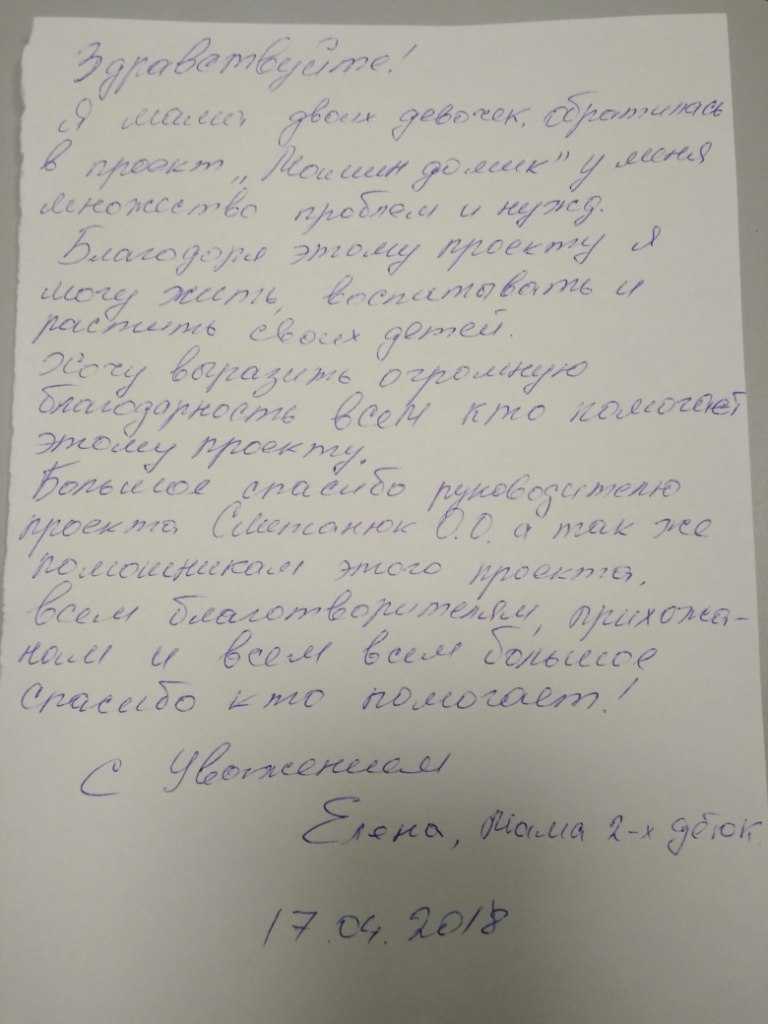 Здравствуйте!
Я мама двоих девочек, обратилась
в проект „Мамин домик" у меня
множество проблем и нужд.
Благодоря этому проекту я
могу жить, воспитывать и
растить своих детей.
Хочу выразить огромную
благодарность всем кто помогает
этому проекту.
Большое спасибо руководителю
проекта Сметанюк О.О. а так же
помошникам этого проекта,
всем благотворителям, прихожа-
нам и всем всем большое
спасибо кто помогает!
С Уважением
Елена, Мама 2-х
17.04.2018